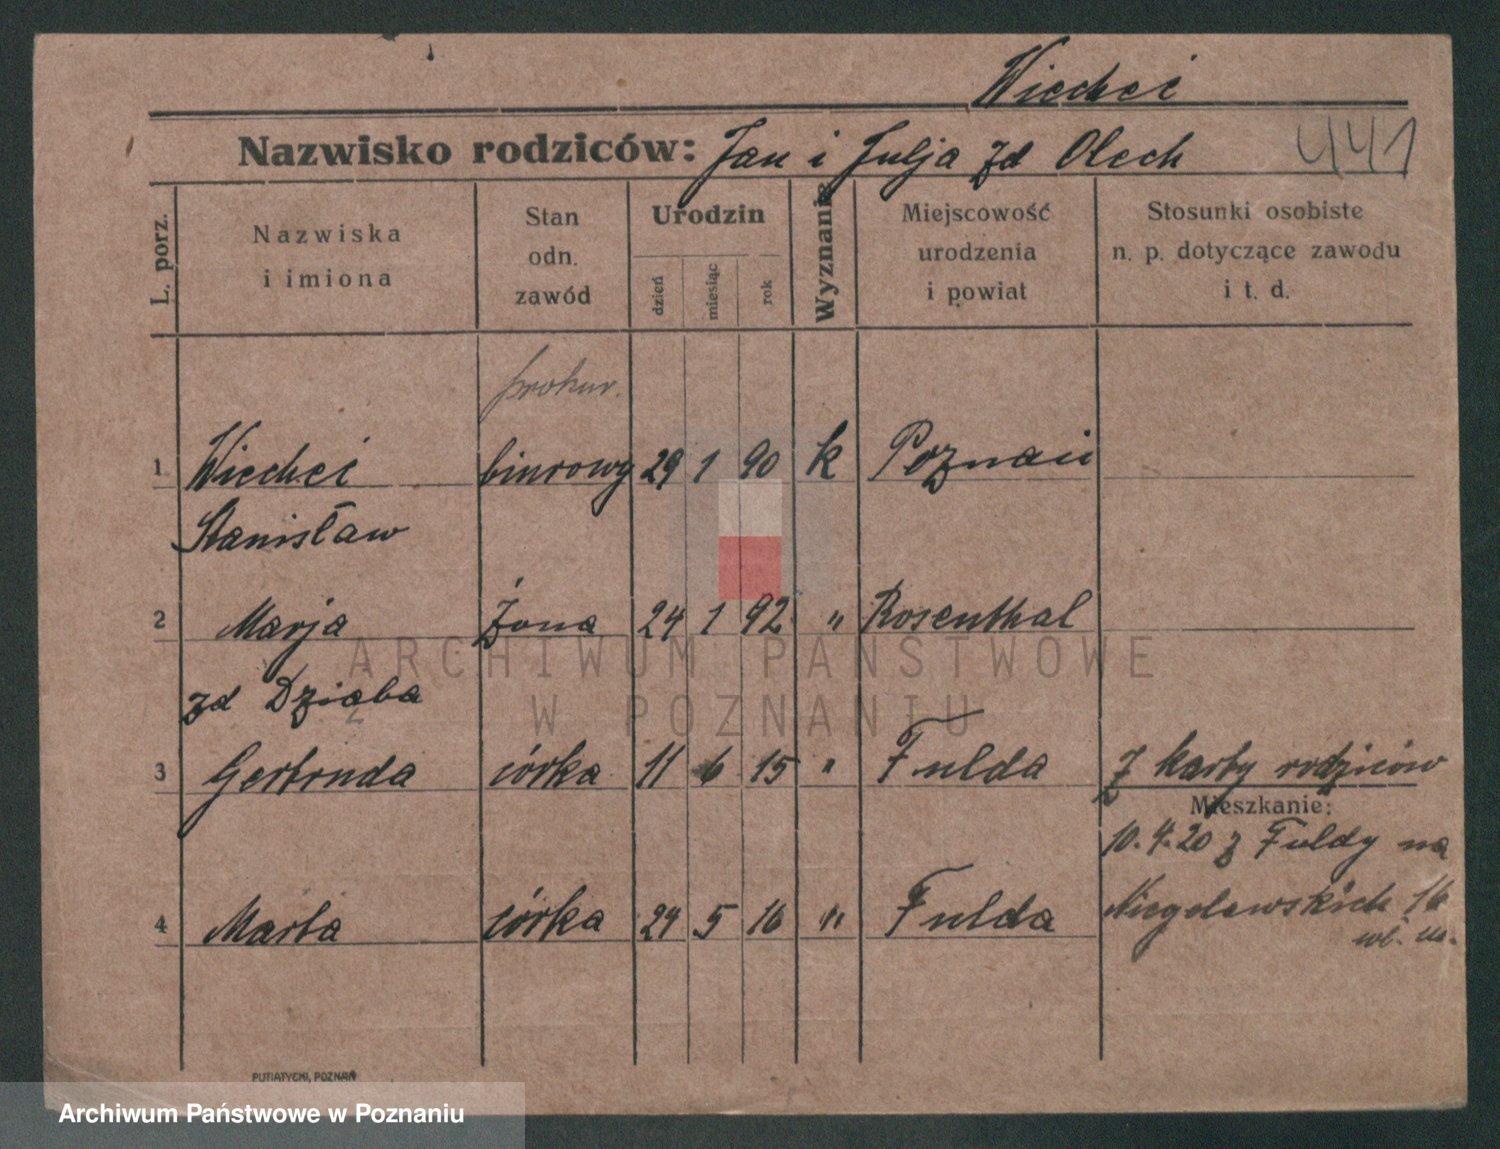 Wiecheć
Nazwisko rodziców: Jan i Julja zd Olech 441
L. porz.
Nazwiska
i imiona
Stan
odn.
zawód
Urodzin
dzień
miesiąc
rok
Wyznanie
Miejscowość
urodzenia
i powiat
Stosunki osobiste
n. p. dotyczące zawodu
i t. d.
prokur.
1. Wiecheć biurowy 29 1 90 k Poznań
Stanisław
2 Marja żona 24 1 92 " Rosenthal
zd Dzięba
3 Gertruda córka 11 6 15 " Fulda z karty rodziców
Mieszkanie:
10.4.20 z Fuldy na
4 Marta córka 24 5 16 " Fulda Niegolewskich 16
wł. m.
PUTIATYCKI, POZNAŃ
ARCHIWUM PAŃSTWOWE
W POZNANIU
Archiwum Państwowe w Poznaniu